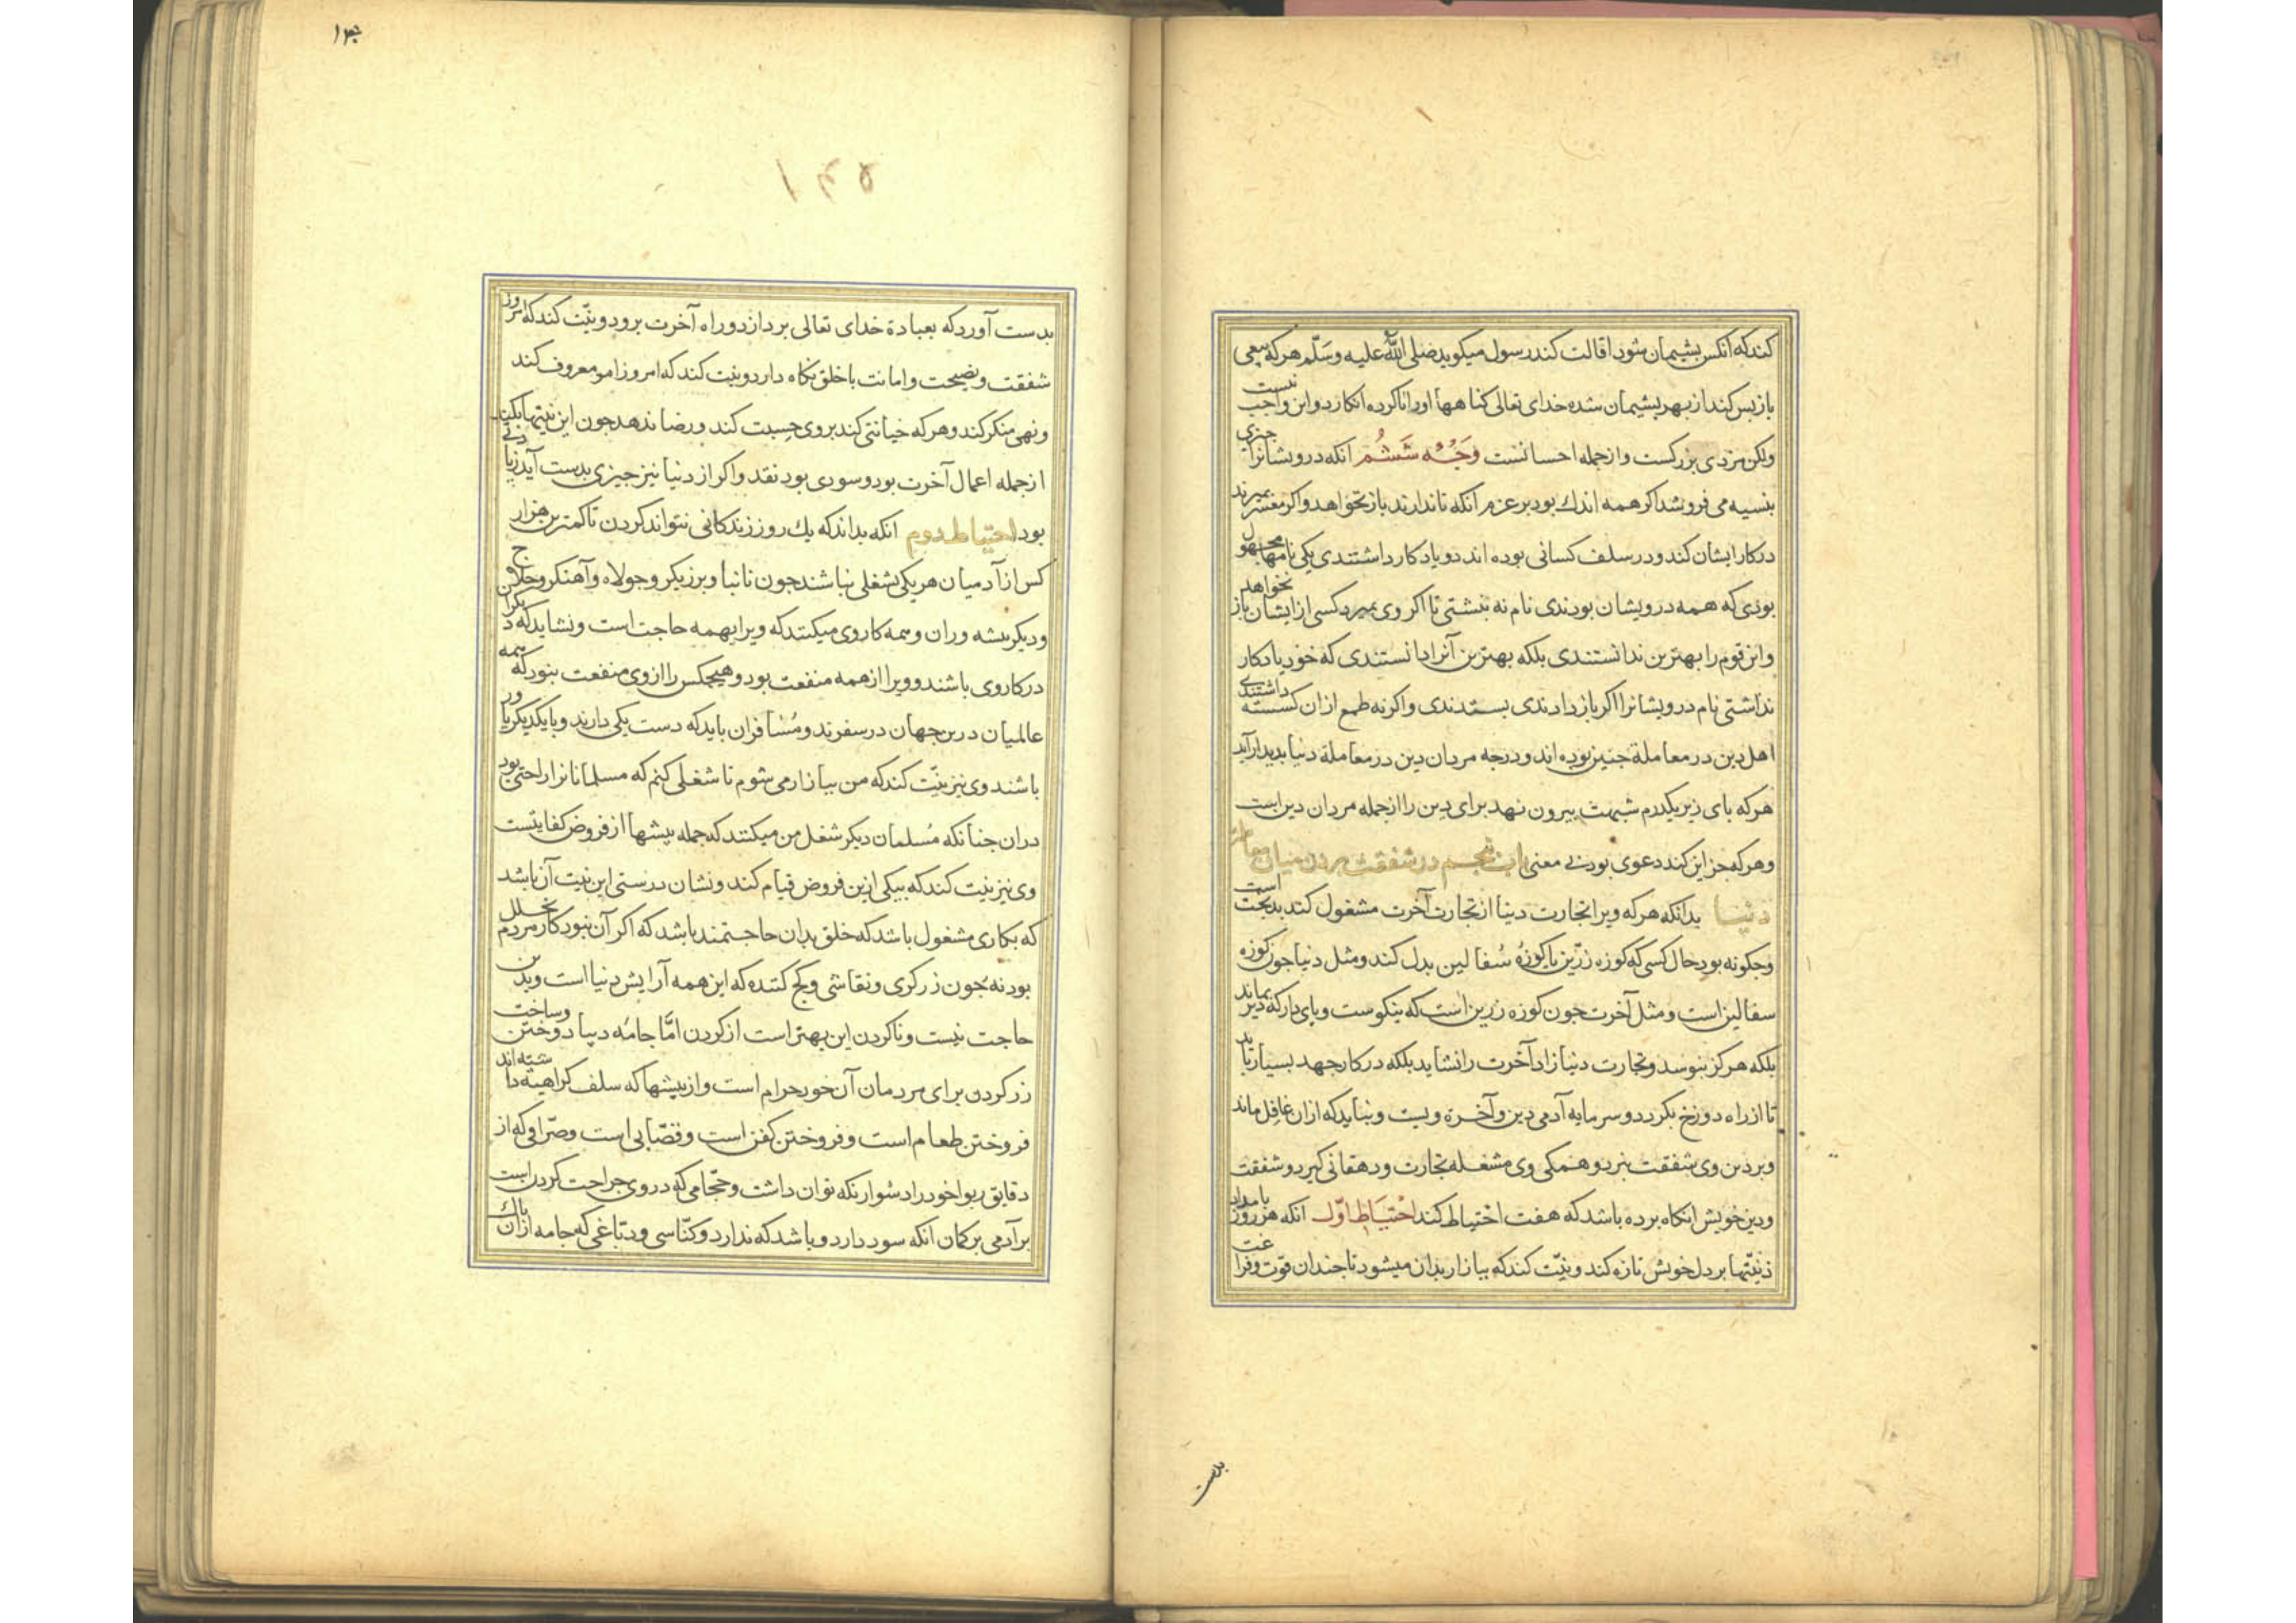 کند که انکس بشیمان شود اقالت کند رسول میکوید صلی الله علیه وسلّم هرکه بیعی
باز بس کند از بهر بشیمان شده خدای تعالی کناهها او را ناکرده انکارد واین واجب نیست
ولکن مزدی بزرکست واز جمله احسانست وَجْه شَشُم انکه درویشانرا جیزی
بنسیه می فروشد اکر همه اندك بود بر عزم انکه تا ندارند باز نخواهد واکر معسر بمیرند
در کار ایشان کند ودر سلف کسانی بوده اند دو یادکار داشتندی یکی نامها مجهول
بودی که همه درویشان بودندی نام نه نبشتی تا اکر وی بمیرد کسی از ایشان باز نخواهد
واین قوم را بهترین ندانستندی بلکه بهترین آنرا دانستندی که خود یادکار
نداشتی نام درویشانرا اکر باز دادندی بستدندی واکرنه طمع ازان کسسته داشتندی
اهل دین در معاملة جنین بوده اند ودرجه مردان دین در معاملة دنیا بدیدار آید
هرکه بای زیر یکدرم شبهت بیرون نهد برای دین را از جمله مردان دین است
وهرکه جز این کند دعوی بود بی معنی باب بنجم در شفقت بردن میان معاملت
دنیا بدانکه هرکه ویرا تجارت دنیا از تجارت آخرت مشغول کند بدبخت است
وجکونه بود حال کسی که کوزه زرّین با کوزهٔ سُفالین بدل کند ومثل دنیا جون کوزه
سفالین است ومثل آخرت جون کوزه زرین است که نیکوست وبای دار که دیر بماند
بلکه هرکز نبوسد وتجارت دنیا زاد آخرت را نشاید بلکه در کار جهد بسیار باید
تا از راه دوزخ بکردد وسرمایه آدمی دین وآخرة ویست ونباید که ازان غافل ماند
وبر دین وی شفقت نبرد وهمکی وی مشغله تجارت ودهقانی کیرد وشفقت
ودین خویش انکاه برده باشد که هفت احْتیاط کند احْتیَاط اوّل انکه هر روز بامداد
نیّتها بر دل خویش تازه کند ونیّت کند که ببازار بدان میشود تا جندان قوت وفراغت
بدست
۱۳۵
بدست آورد که بعبادة خدای تعالی بردازد وراه آخرت برود ونیّت کند که امروز
شفقت ونصیحت وامانت با خلق نکاه دارد ونیت کند که امروز امر معروف کند
ونهی منکر کند وهرکه خیانتی کند بر وی حسبت کند ورضا ندهد جون این نیتها بکند
از جمله اعمال آخرت بود وسودی بود نقد واکر از دنیا نیز جیزی بدست آید زیادتی
بود احتیاط دوم انکه بداند که یك روز زندکانی نتواند کردن تا کمترین هزار
کس از آدمیان هر یکی بشغلی نباشند جون نانبا وبرزیکر وجولاه وآهنکر وحلاج
ودیکر بیشه وران وهمه کار وی میکنند که ویرا بهمه حاجت است ونشاید که دیکران
در کار وی باشند وویرا از همه منفعت بود وهیجکس را از وی منفعت نبود که همه
عالمیان درین جهان در سفرند ومُسَافران باید که دست یکی دارند وبا یکدیکر یاور
باشند وی نیز نیّت کند که من ببازار می شوم تا شغلی کنم که مسلمانانرا راحتی بود
دران جنانکه مُسلمان دیکر شغل من میکنند که جمله بیشها از فروض کفایتست
وی نیز نیت کند که بیکی ازین فروض قیام کند ونشان درستی این نیت آن باشد
که بکاری مشغول باشد که خلق بدان حاجتمند باشد که اکر آن نبود کار مردم بخلل
بود نه جون زرکری ونقاشی وکج کننده که این همه آرایش دنیا است وبدین
حاجت نیست وناکردن این بهتر است از کردن امّا جامه دیبا دوختن وساخت
زر کردن برای مردمان آن خود حرام است واز بیشها که سلف کراهیه داشته اند
فروختن طعام است وفروختن کفن است وقصّابی است وصرّافی که از
دقایق ربوا خود را دشوار نکه توان داشت وحجّامی که دروی جراحت کردن است
بر آدمی بر کمان انکه سود دارد وباشد که ندارد وکنّاسی ودبّاغی که جامه ازان باك